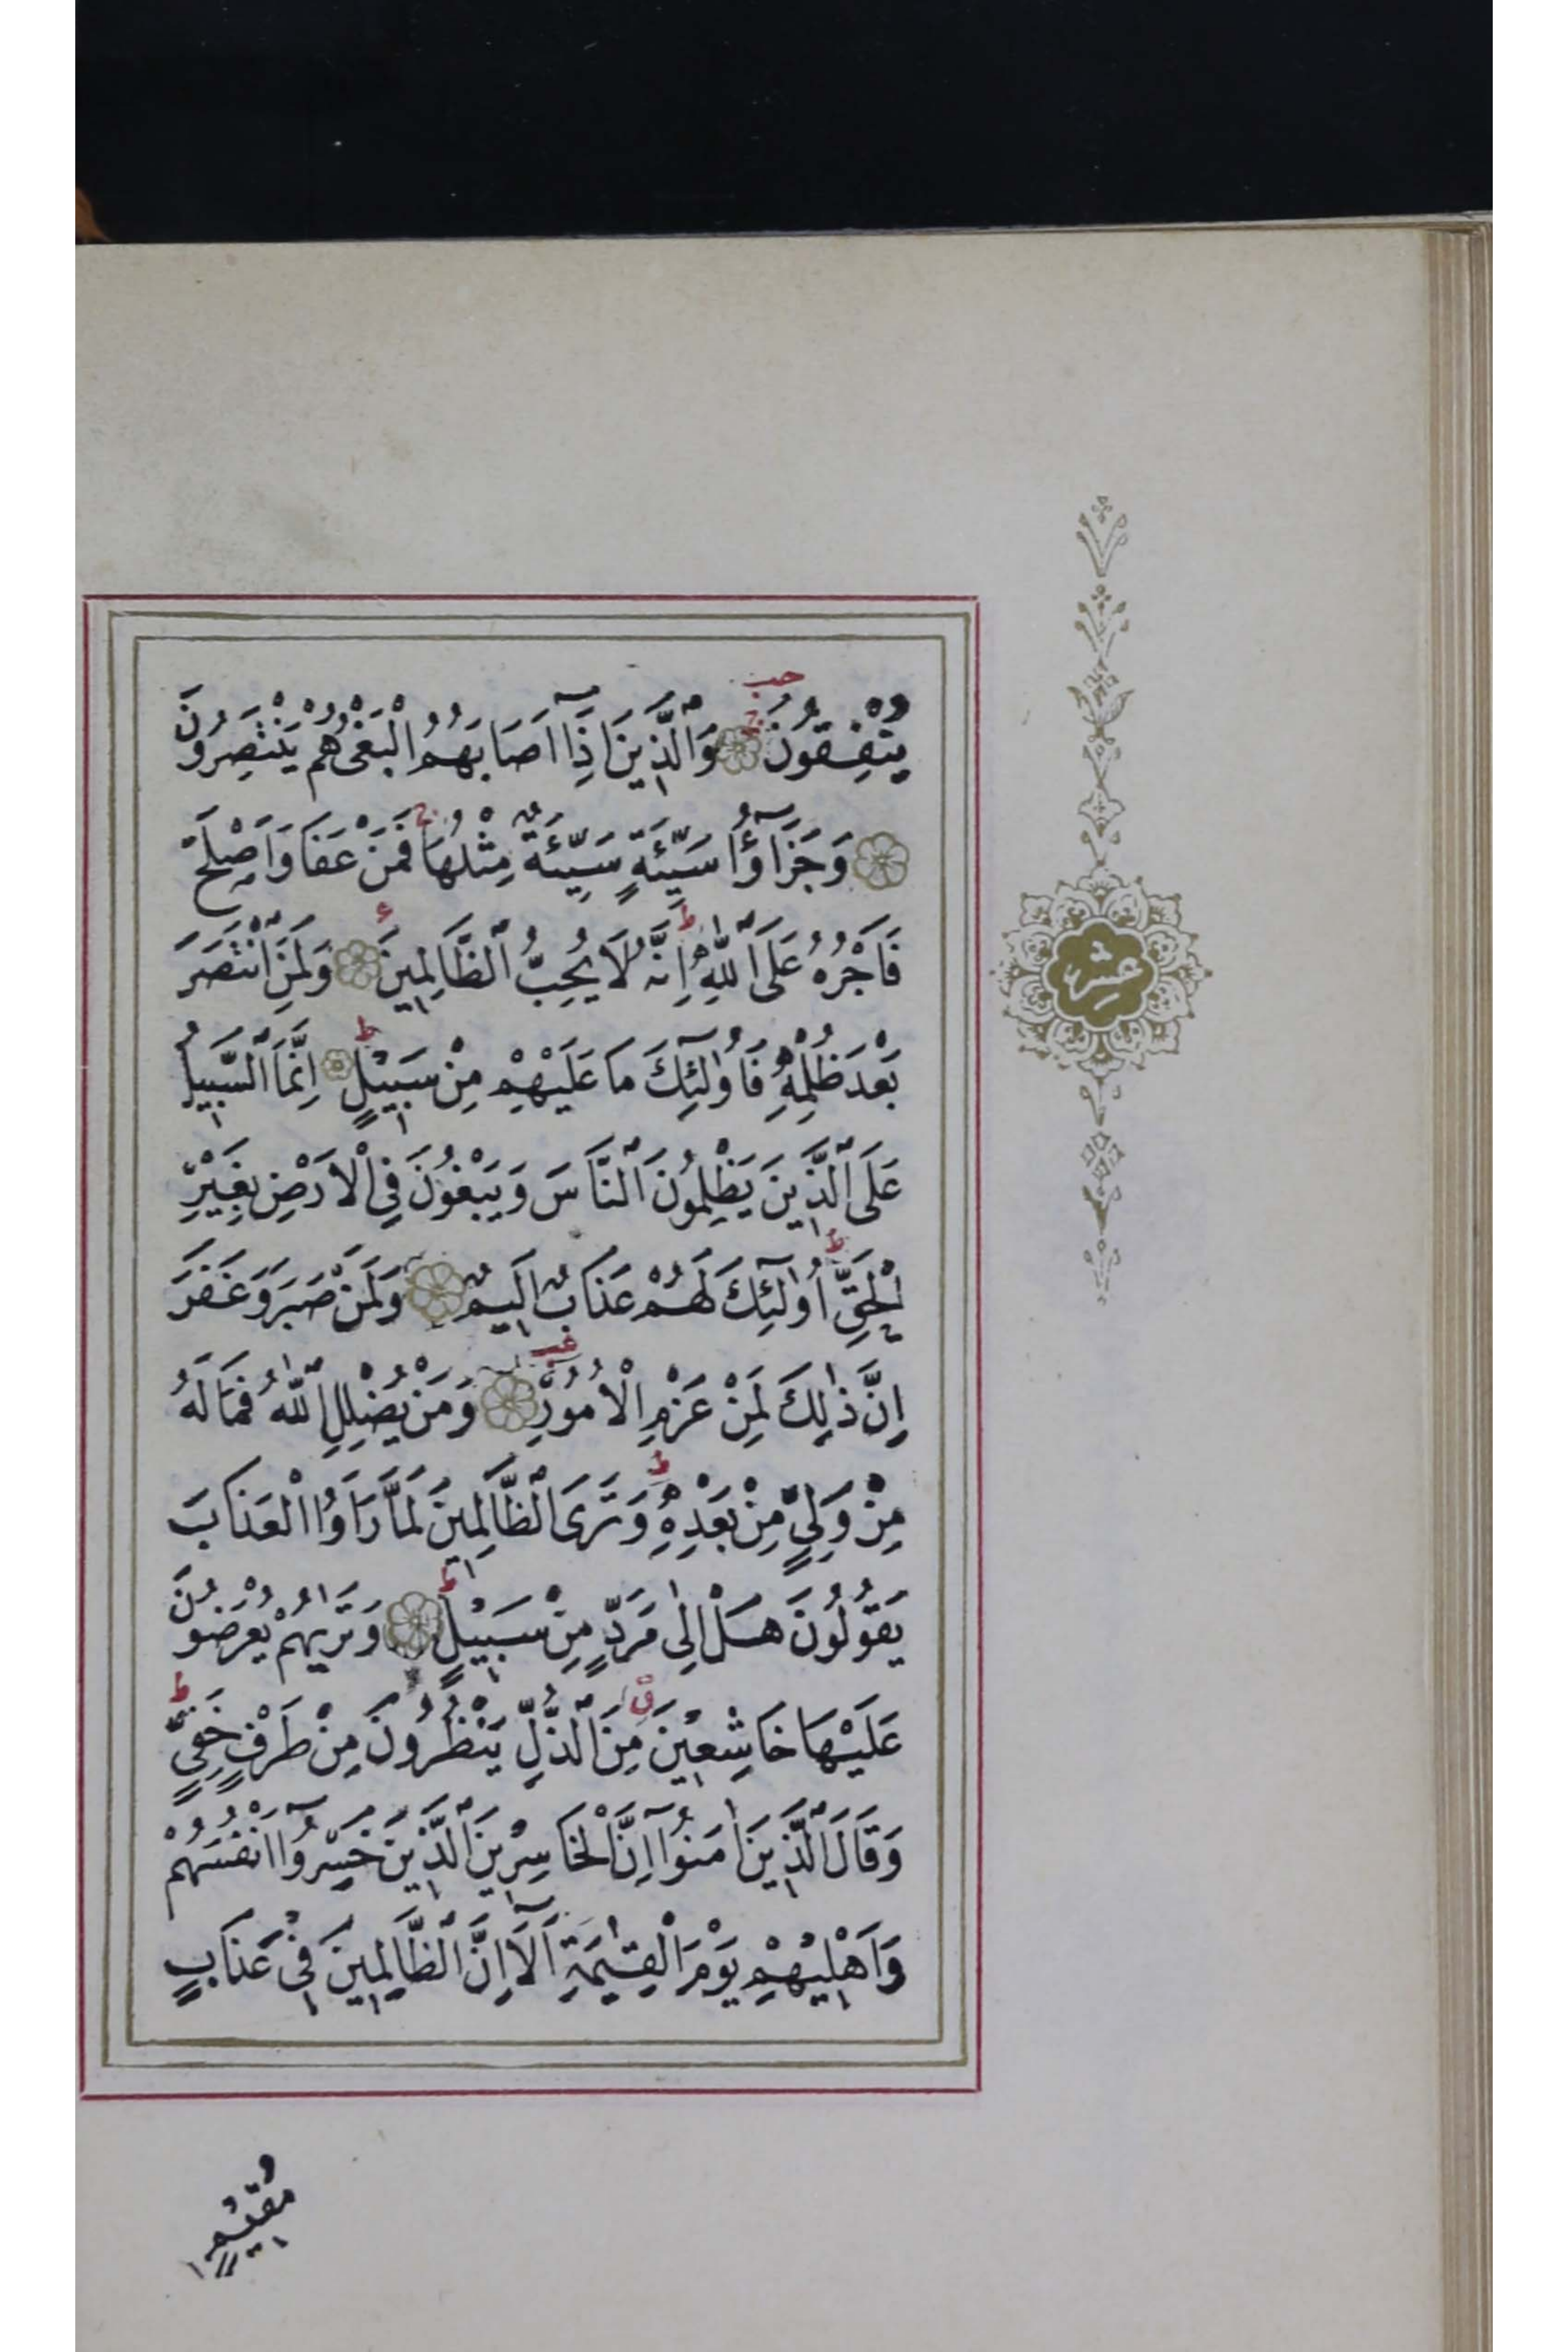 يُنْفِقُونَ وَالَّذِينَ اِذَٓا اَصَابَهُمُ الْبَغْىُ هُمْ يَنْتَصِرُونَ
وَجَزَٓاؤُا سَيِّئَةٍ سَيِّئَةٌ مِثْلُهَا فَمَنْ عَفَا وَاَصْلَحَ
فَاَجْرُهُ عَلَى اللّٰهِ اِنَّهُ لَا يُحِبُّ الظَّالِمِينَ وَلَمَنِ انْتَصَرَ
بَعْدَ ظُلْمِهِ فَاُولٰٓئِكَ مَا عَلَيْهِمْ مِنْ سَبِيلٍ اِنَّمَا السَّبِيلُ
عَلَى الَّذِينَ يَظْلِمُونَ النَّاسَ وَيَبْغُونَ فِى الْاَرْضِ بِغَيْرِ
الْحَقِّ اُولٰٓئِكَ لَهُمْ عَذَابٌ اَلِيمٌ وَلَمَنْ صَبَرَ وَغَفَرَ
اِنَّ ذٰلِكَ لَمِنْ عَزْمِ الْاُمُورِ وَمَنْ يُضْلِلِ اللّٰهُ فَمَا لَهُ
مِنْ وَلِىٍّ مِنْ بَعْدِهِ وَتَرَى الظَّالِمِينَ لَمَّا رَاَوُا الْعَذَابَ
يَقُولُونَ هَلْ اِلٰى مَرَدٍّ مِنْ سَبِيلٍ وَتَرٰيهُمْ يُعْرَضُونَ
عَلَيْهَا خَاشِعِينَ مِنَ الذُّلِّ يَنْظُرُونَ مِنْ طَرْفٍ خَفِىٍّ
وَقَالَ الَّذِينَ اٰمَنُٓوا اِنَّ الْخَاسِرِينَ الَّذِينَ خَسِرُٓوا اَنْفُسَهُمْ
وَاَهْلِيهِمْ يَوْمَ الْقِيٰمَةِ اَلَٓا اِنَّ الظَّالِمِينَ فِى عَذَابٍ
مُقِيمٍ
عشر